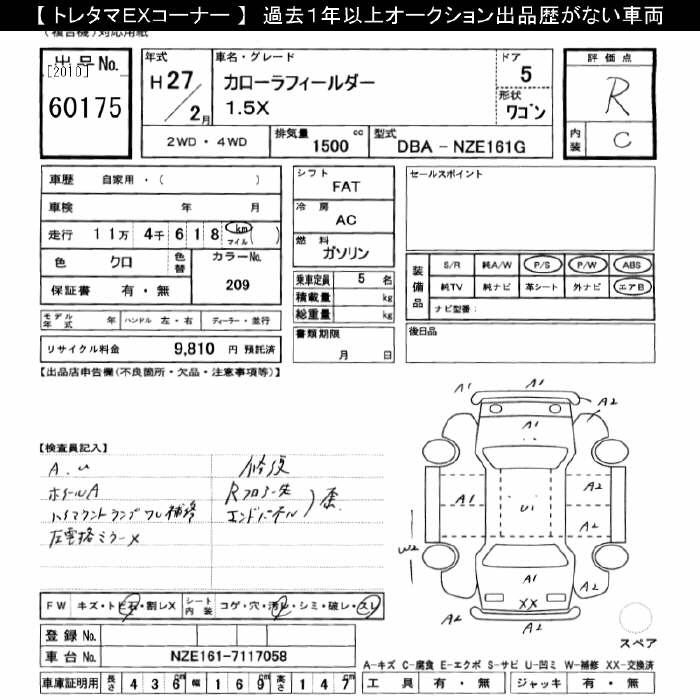 【 トレタマEXコーナー 】 過去1年以上オークション出品歴がない車両
（複合機）対応用紙
出品No.
[2010]
60175
年式
H27/2月
車名・グレード
カローラフィールダー
1.5X
ドア
5
形状
ワゴン
2WD ・ 4WD
排気量 1500 cc
型式 DBA - NZE161G
評価点
R
内装
C
車歴 自家用 ・ ( )
車検 年 月
走行 11万 4千 6 1 8 km マイル ( )
色 クロ
色替
カラーNo.
209
保証書 有 ・ 無
モデル年式 年
ハンドル 左 ・ 右
ディーラー ・ 並行
リサイクル料金 9,810 円 預託済
シフト
FAT
冷房
AC
燃料
ガソリン
乗車定員 5 名
積載量 kg
総重量 kg
書類期限
月 日
セールスポイント
装備品
S/R 純A/W P/S P/W ABS
純TV 純ナビ 革シート 外ナビ エアB
ナビ型番：
後日品
【出品店申告欄(不良箇所・欠品・注意事項等)】
【検査員記入】
A.u
ホイールA
ハイマウントランプワレ補修
左電格ミラーX
修復
Rフロアー先
エンドパネル
歪
A1
A1
A2
A2
A1
A1
U1
A2
A2
A2
W2
A1
XX
A2
A2
スペア
FW キズ・トビ石・割レX
シート内装 コゲ・穴・汚レ・シミ・破レ・スレ
登録No.
車台No. NZE161-7117058
車庫証明用 長さ 436cm 幅 169cm 高さ 147cm
A-キズ C-腐食 E-エクボ S-サビ U-凹ミ W-補修 XX-交換済
工具 有 ・ 無 ジャッキ 有 ・ 無